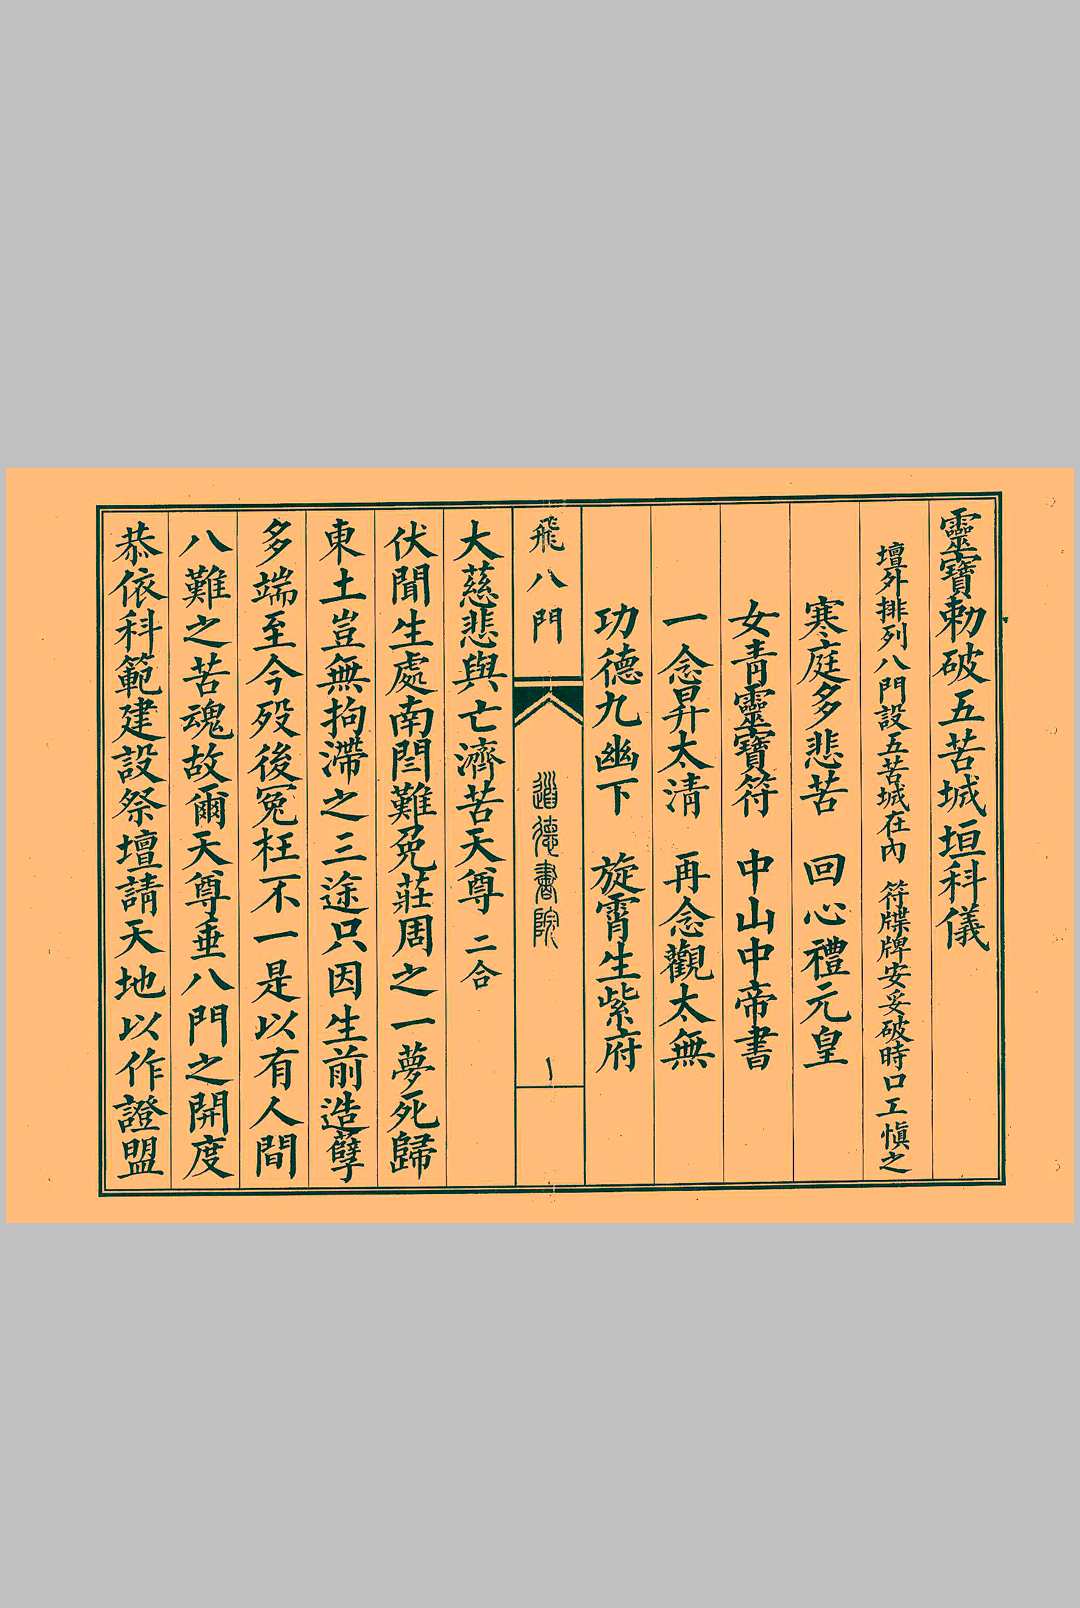 靈寶勅破五苦城垣科儀
壇外排列八門設五苦城在內　符牒牌安妥破時口工慎之
寒庭多悲苦　回心禮元皇
女青靈寶符　中山中帝書
一念昇太清　再念觀太無
功德九幽下　旋霄生紫府
飛八門　道德書院　一
大慈悲與亡濟苦天尊　二合
伏聞生處南閻難免莊周之一夢死歸
東土豈無拘滯之三途只因生前造孽
多端至今歿後冤枉不一是以有人間
八難之苦魂故爾天尊垂八門之開度
恭依科範建設祭壇請天地以作證盟